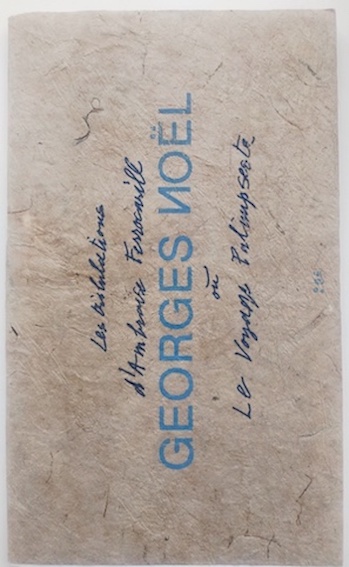 Les tribulations
d'Ambroise
GEORGES NOËL
où
Le Voyage Palimpseste